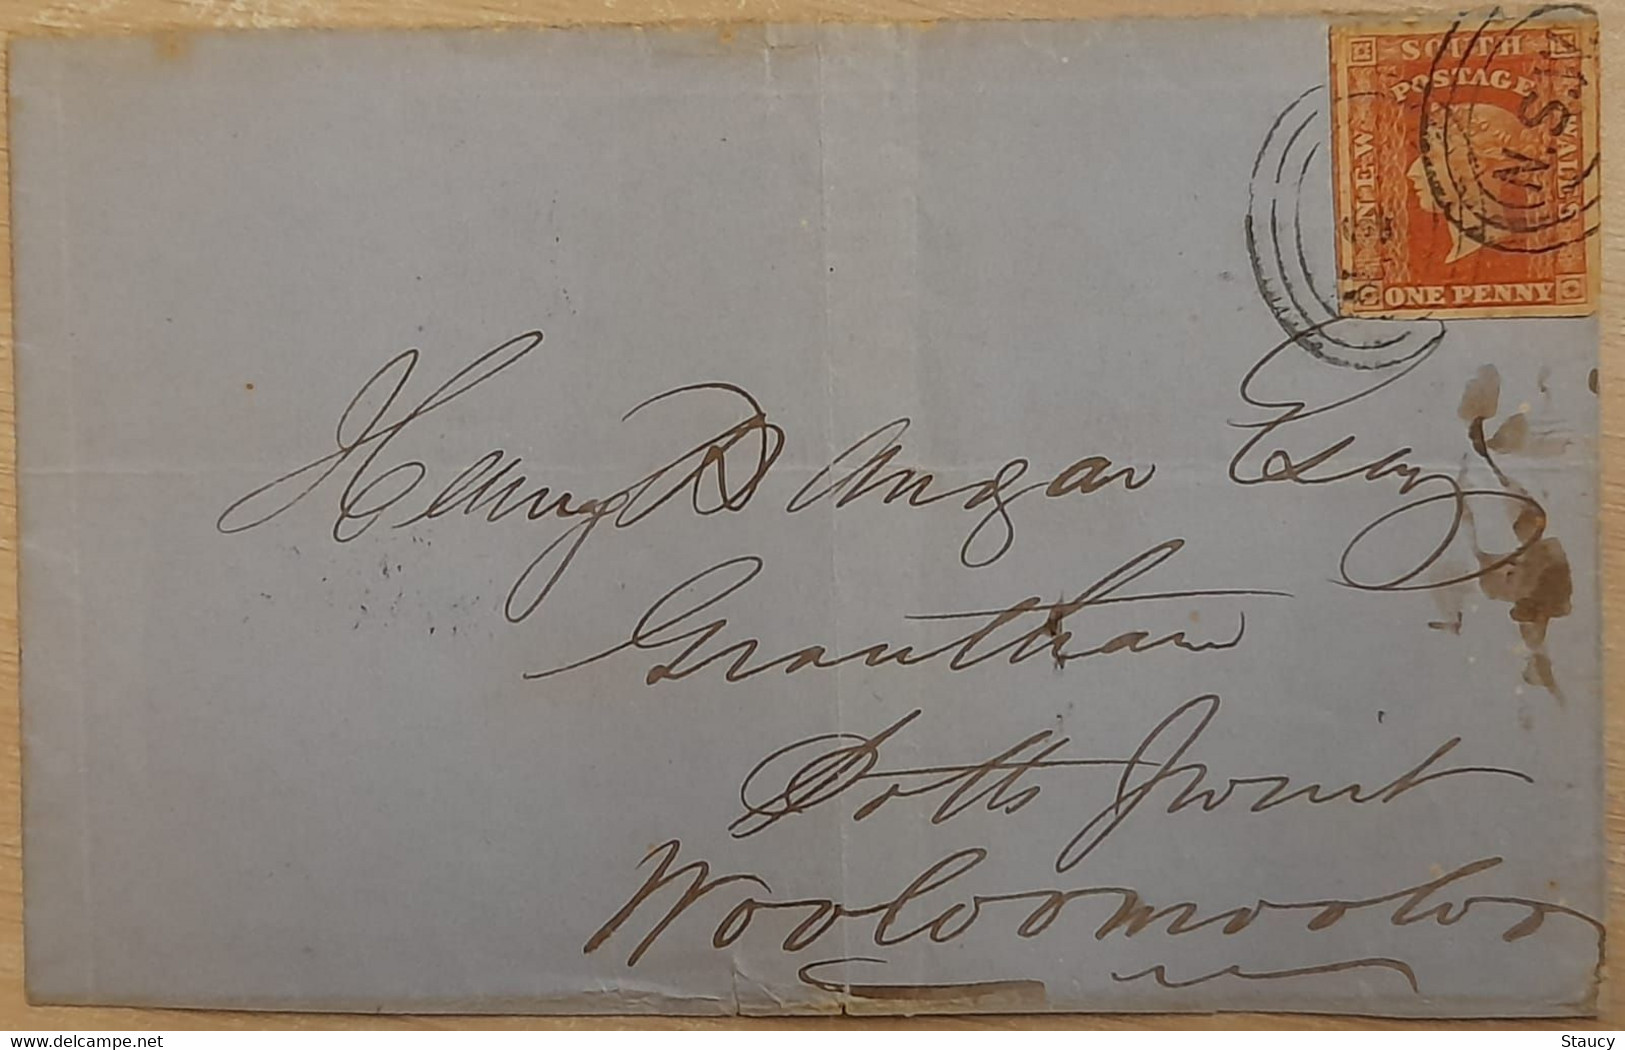 SOUTH
POSTAGE
NEW
WALES
ONE PENNY
N.S.W
Henry Dangar Esqr
Grantham
Potts Point
Wooloomooloo
delcampe.com
Staucy